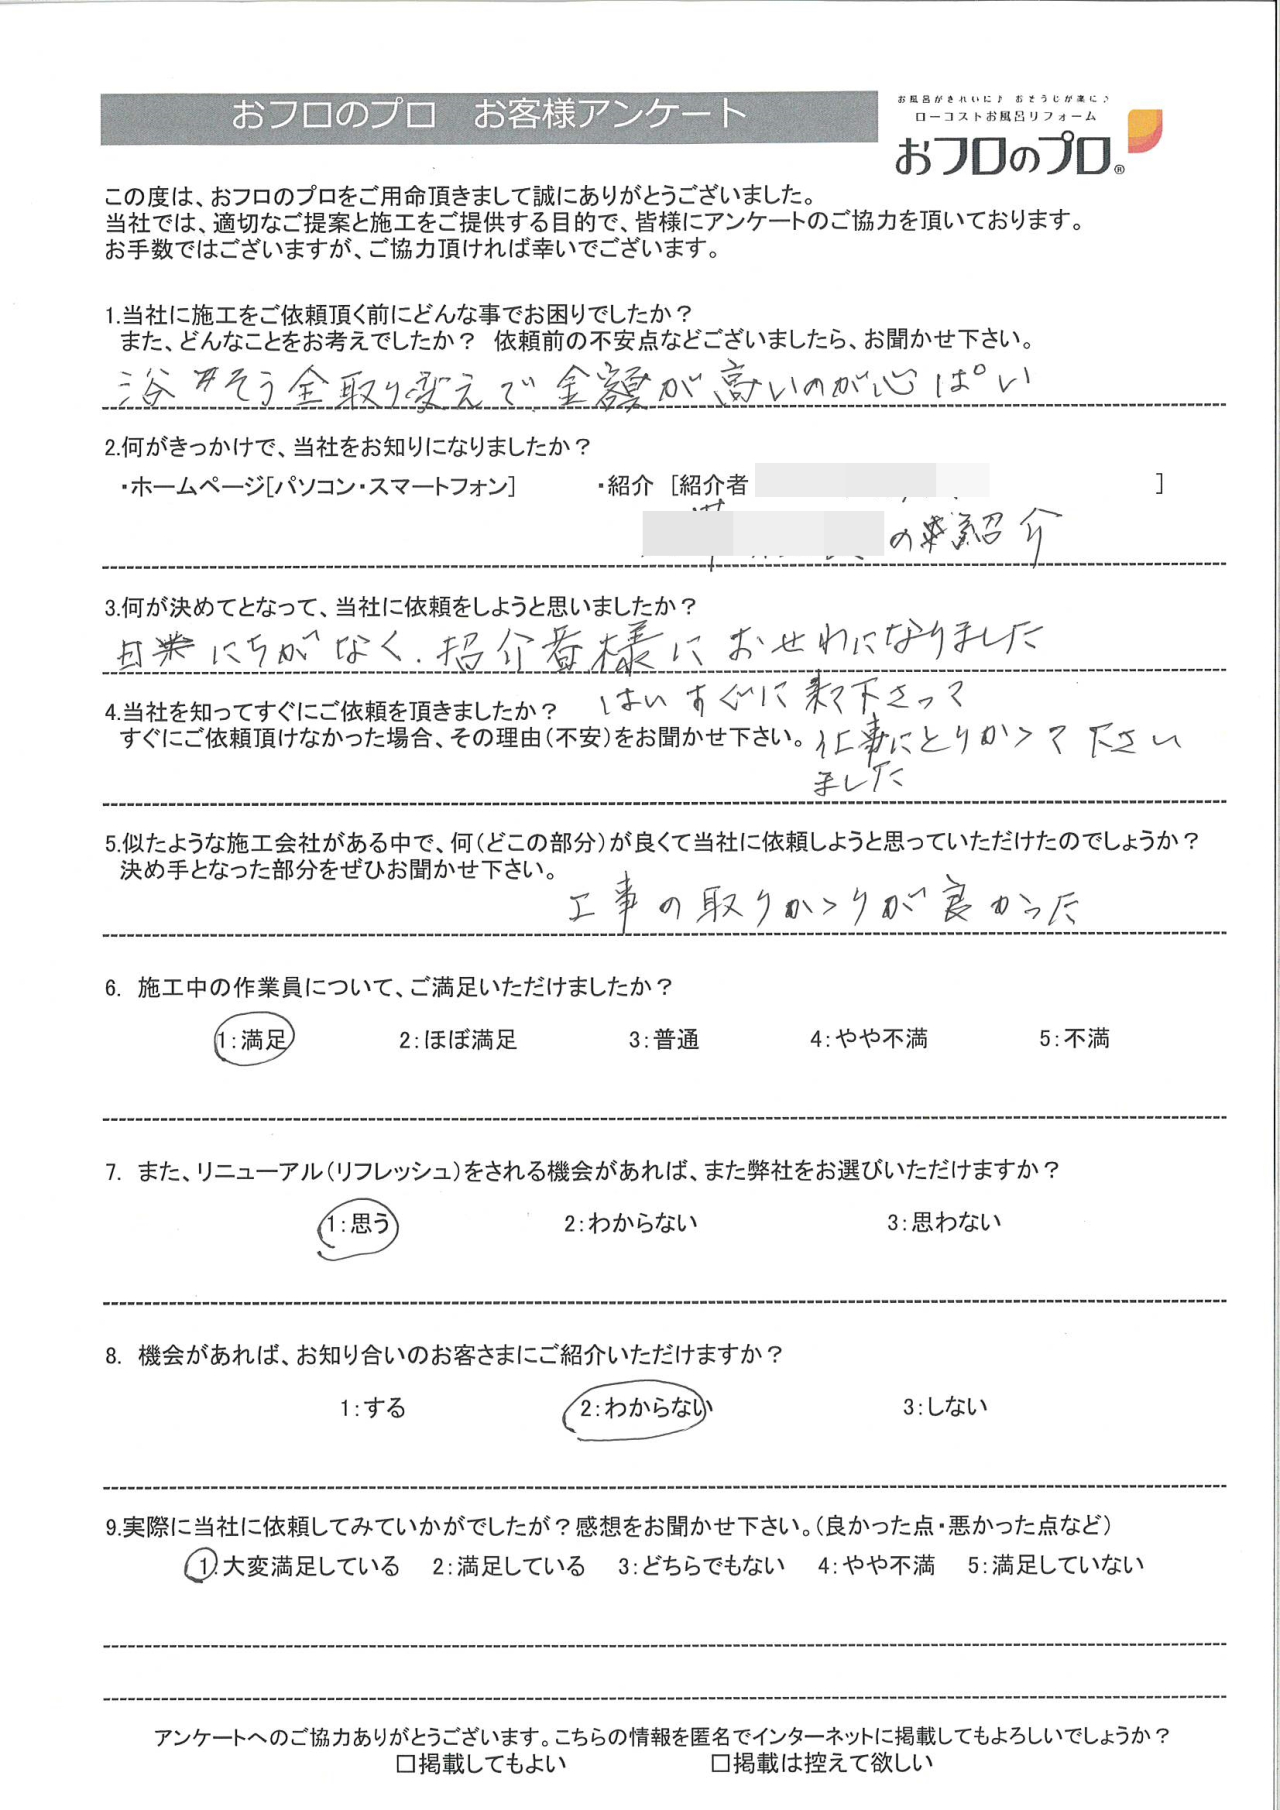 おフロのプロ　お客様アンケート
お風呂がきれいに♪ おそうじが楽に♪
ローコストお風呂リフォーム
おフロのプロ®
この度は、おフロのプロをご用命頂きまして誠にありがとうございました。
当社では、適切なご提案と施工をご提供する目的で、皆様にアンケートのご協力を頂いております。
お手数ではございますが、ご協力頂ければ幸いでございます。
1.当社に施工をご依頼頂く前にどんな事でお困りでしたか？
また、どんなことをお考えでしたか？ 依頼前の不安点などございましたら、お聞かせ下さい。
浴そう全取り変えで金額が高いのが心ぱい
2.何がきっかけで、当社をお知りになりましたか？
・ホームページ[パソコン・スマートフォン]　・紹介 [紹介者　]
の紹介
3.何が決めてとなって、当社に依頼をしようと思いましたか？
にちがなく、紹介者様におせわになりました
4.当社を知ってすぐにご依頼を頂きましたか？ はいすぐに来て下さって
すぐにご依頼頂けなかった場合、その理由(不安)をお聞かせ下さい。 仕事にとりかゝって下さい
ました
5.似たような施工会社がある中で、何(どこの部分)が良くて当社に依頼しようと思っていただけたのでしょうか？
決め手となった部分をぜひお聞かせ下さい。
工事の取りかゝりが良かった
6. 施工中の作業員について、ご満足いただけましたか？
1:満足　2:ほぼ満足　3:普通　4:やや不満　5:不満
7. また、リニューアル(リフレッシュ)をされる機会があれば、また弊社をお選びいただけますか？
1:思う　2:わからない　3:思わない
8. 機会があれば、お知り合いのお客さまにご紹介いただけますか？
1:する　2:わからない　3:しない
9.実際に当社に依頼してみていかがでしたが？感想をお聞かせ下さい。(良かった点・悪かった点など)
1:大変満足している　2:満足している　3:どちらでもない　4:やや不満　5:満足していない
アンケートへのご協力ありがとうございます。こちらの情報を匿名でインターネットに掲載してもよろしいでしょうか？
□掲載してもよい　□掲載は控えて欲しい